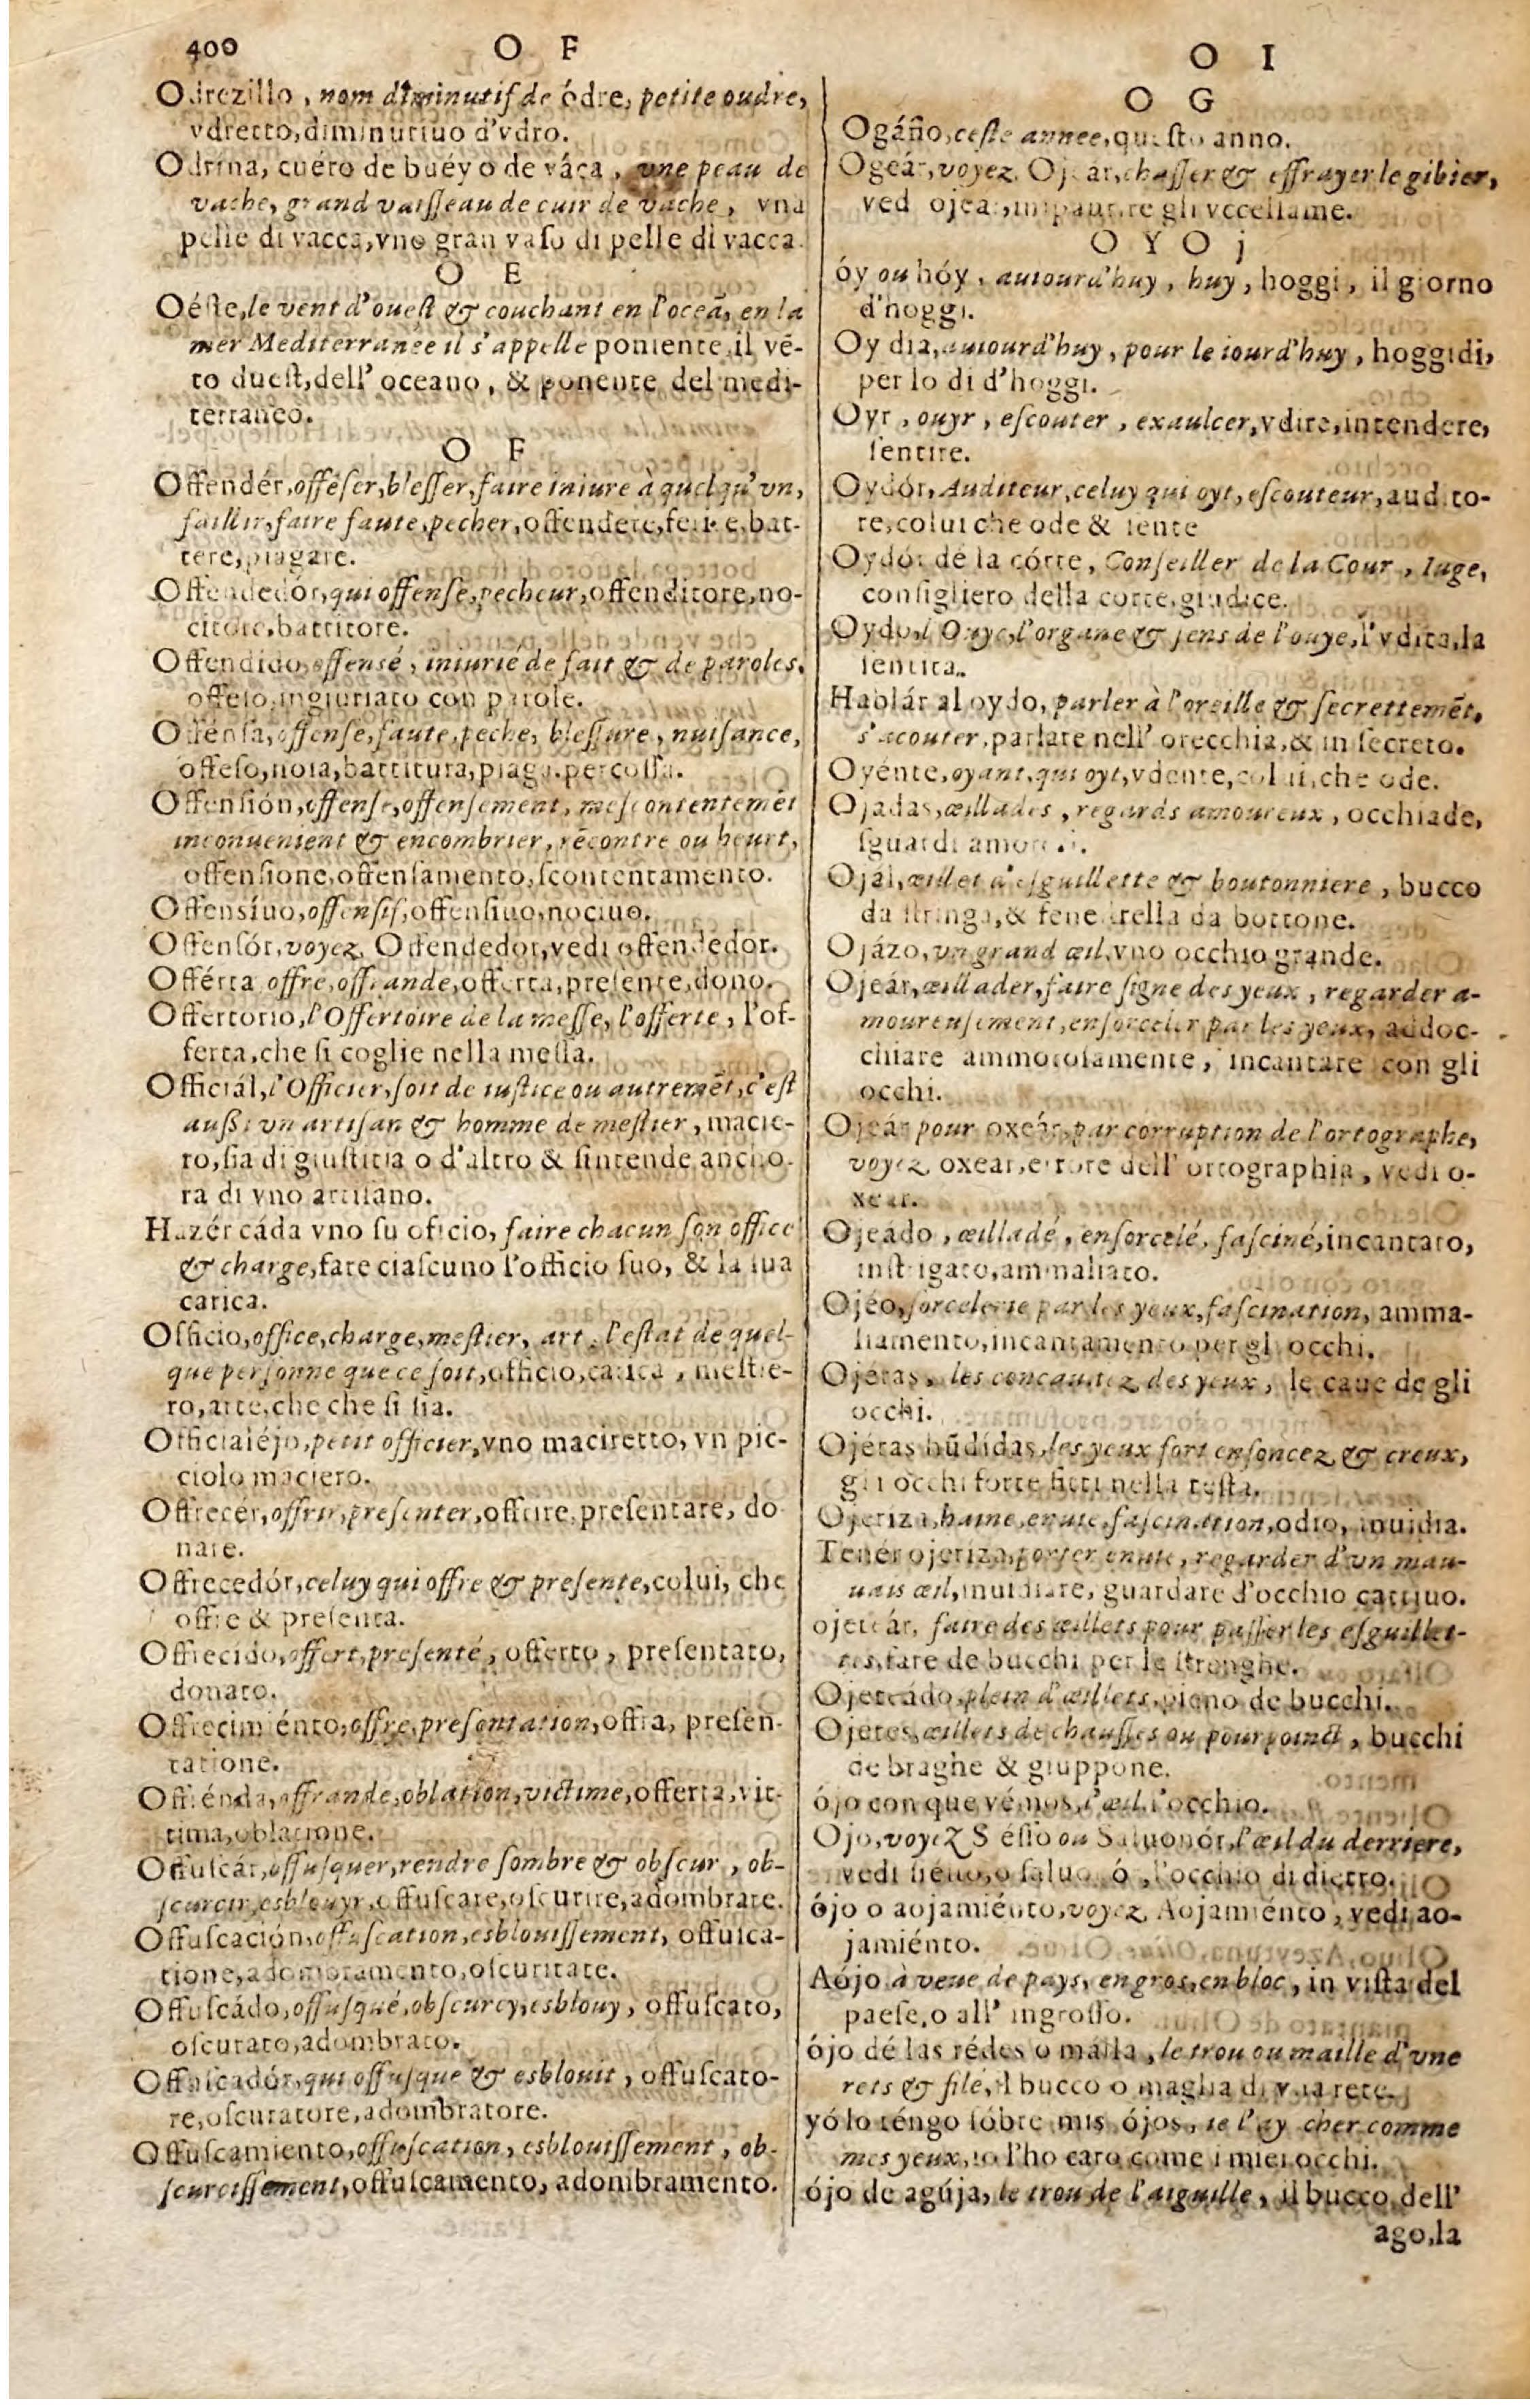 400
O F
O I
Odrezillo, nom diminutif de ódre, petite oudre,
vdretto, diminutiuo d'vdro.
Odrina, cuéro de buéy o de váca, vne peau de
vache, grand vaiſſeau de cuir de vache, vna
pelle di vacca, vno gran vaſo di pelle di vacca.
O E
Oéſte, le vent d'oueſt & couchant en l'oceã, en la
mer Mediterranée il s'appelle poniente, il vẽ-
to dueſt, dell' oceano, & ponente del medi-
terraneo.
O F
Offendér, offẽſer, bleſſer, faire iniure à quelqu'vn,
faillir, faire faute, pecher, offendere, ferire, bat-
tere, piagare.
Offendedór, qui offenſe, pecheur, offenditore, no-
citore, battitore.
Offendido, offensé, iniurié de fait & de paroles,
offeſo, ingiuriato con parole.
Offénſa, offenſe, faute, peche, bleſſure, nuiſance,
offeſo, noia, battitura, piaga, percoſſa.
Offenſión, offenſe, offenſement, meſcontentemẽt
inconuenient & encombrier, rẽcontre ou heurt,
offenſione, offenſamento, ſcontentamento.
Offensíuo, offenſif, offenſiuo, nociuo.
Offenſór, voyez, Offendedor, vedi offendedor.
Offérta offre, offrande, offerta, preſente, dono.
Offertorio, l'Offertoire de la meſſe, l'offerte, l'of-
ferta, che ſi coglie nella meſſa.
Officiál, l'Officier, ſoit de iuſtice ou autremẽt, c'eſt
auſſi vn artiſan & homme de meſtier, macie-
ro, ſia di giuſtitia o d'altro & ſintende ancho-
ra di vno artiſano.
Hazér cáda vno ſu oficio, faire chacun ſon office
& charge, fare ciaſcuno l'officio ſuo, & la ſua
carica.
Officio, office, charge, meſtier, art, l'eſtat de quel-
que perſonne que ce ſoit, officio, carica, meſtie-
ro, arte, che che ſi ſia.
Officialéjo, petit officier, vno maciretto, vn pic-
ciolo maciero.
Offrecér, offrir, preſenter, offrire, preſentare, do
nare.
Offrecedór, celuy qui offre & preſente, colui, che
offre & preſenta.
Offrecido, offert, preſenté, offerto, preſentato,
donato.
Offrecimiénto, offre, preſentation, offra, preſen-
tatione.
Offrénda, offrande, oblation, victime, offerta, vit-
tima, oblatione.
Offuſcár, offuſquer, rendre ſombre & obſcur, ob-
ſcurcir, esblouyr, offuſcare, oſcurire, adombrare.
Offuſcación, offuſcation, esblouiſſement, offuſca-
tione, adombramento, oſcuritate.
Offuſcádo, offuſqué, obſcurcy, esblouy, offuſcato,
oſcurato, adombrato.
Offuſcadór, qui offuſque & esblouit, offuſcato-
re, oſcuratore, adombratore.
Offuſcamiento, offuſcation, esblouiſſement, ob-
ſcurciſſement, offuſcamento, adombramento.
O G
Ogáño, ceſte annee, queſto anno.
Ogeár, voyez, Ojeár, chaſſer & effrayer le gibier,
ved ojear, impaurire gli vccellame.
O Y O j
óy ou hóy, auiourd'huy, huy, hoggi, il giorno
d'hoggi.
Oy dia, auiourd'huy, pour le iourd'huy, hoggidi,
per lo di d'hoggi.
Oyr, ouyr, eſcouter, exaulcer, vdire, intendere,
ſentire.
Oydór, Auditeur, celuy qui oyt, eſcouteur, audito-
re, colui che ode & ſente
Oydór dé la córte, Conſeiller de la Cour, Iuge,
conſigliero della corte, giudice.
Oydo, l'Ouye, l'organe & ſens de l'ouye, l'vdita, la
ſentita.
Hablár al oydo, parler à l'oreille & ſecrettemẽt,
s'acouter, parlare nell' orecchia, & in ſecreto.
Oyénte, oyant, qui oyt, vdente, colui, che ode.
Ojadas, œillades, regards amoureux, occhiade,
ſguardi amoroſi.
Ojál, œillet d'eſguillette & boutonniere, bucco
da ſtringa, & feneſtrella da bottone.
Ojázo, vn grand œil, vno occhio grande.
Ojeár, œillader, faire ſigne des yeux, regarder a-
moureuſement, enſorceler par les yeux, addoc-
chiare ammoroſamente, incantare con gli
occhi.
Ojeár pour oxeár, par corruption de l'ortographe,
voyez oxear, errore dell' ortographia, vedi o-
xear.
Ojeádo, œilladé, enſorcelé, faſciné, incantato,
inſtrigato, ammaliato.
Ojéo, ſorcelerie par les yeux, faſcination, amma-
liamento, incantamento per gl'occhi.
Ojéras, les concauitez des yeux, le caue de gli
occhi.
Ojéras hũdídas, les yeux fort enfoncez & creux,
gli occhi forte fitti nella teſta.
Ojeriza, haine, enuie, faſcination, odio, inuidia.
Tenér ojeriza, porter enuie, regarder d'vn mau-
uais œil, inuidiare, guardare d'occhio cattiuo.
ojeteár, faire des œillets pour paſſer les eſguillet-
tes, fare de bucchi per le ſtrenghe.
Ojeteádo, plein d'œillets, pieno de bucchi.
Ojetes, œillets de chauſſes ou pourpoinct, bucchi
de braghe & giuppone.
ójo con que vémos, l'œil, l'occhio.
Ojo, voyez Siéſſo ou Saluonór, l'œil du derriere,
vedi ſieſſo, o ſaluonór, l'occhio di dietro.
ójo o aojamiénto, voyez Aojamiénto, vedi ao-
jamiénto.
Aójo à veue de pays, en gros, en bloc, in viſta del
paeſe, o all' ingroſſo.
ójo dé las rédes o málla, le trou ou maille d'vne
rets & filé, il bucco o maglia di vna rete.
yó lo téngo ſóbre mis ójos, ie l'ay cher comme
mes yeux, io l'ho caro come i miei occhi.
ójo de agúja, le trou de l'aiguille, il bucco dell'
ago, la